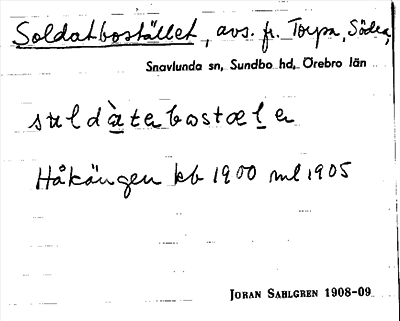 Soldatbostället, avs. fr. Torpa, Södra,
Snavlunda sn, Sundbo hd, Örebro län
suldàtebostælet
Håkängen kb 1900 ml 1905
JÖRAN SAHLGREN 1908-09